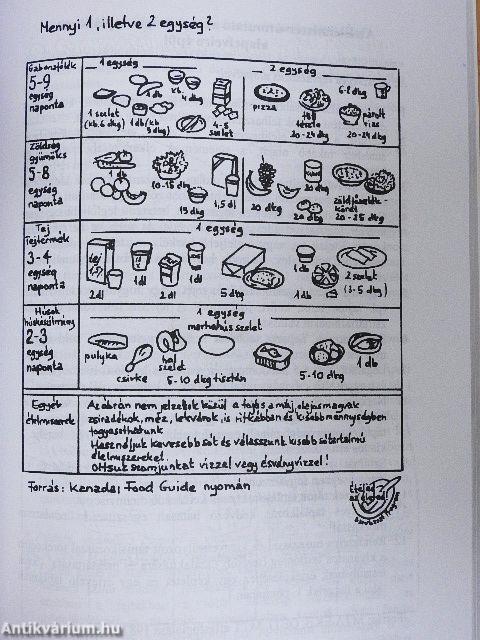 Mennyi 1, illetve 2 egység?
Gabonafélék
5-9
egység
naponta
1 egység
1 db
kb.
4 dkg
1 szelet
(kb. 6 dkg)
1 db (kb.
5 dkg)
4-5
szelet
2 egység
pizza
főtt
tészta
20-24 dkg
6-8 dkg
párolt
rizs
20-24 dkg
Zöldség
gyümölcs
5-8
egység
naponta
1 egység
1 db
10-15 dkg
15 dkg
1,5 dl
2 egység
20 dkg
20 dkg
20 dkg
zöldfőzelék-
köret
20-25 dkg
Tej
Tejtermék
3-4
egység
naponta
1 egység
tej
1,5%
2 dl
1 dl
2 dl
1 dl
5 dkg
1 db
1 db
2 szelet
(3-5 dkg)
Húsok
húskészítmény
2-3
egység
naponta
1 egység
marhahús szelet
pulyka
csirke
hal
szelet
5-10 dkg tisztán
5-10 dkg
1 db
Egyéb
élelmiszerek
Az ábrán nem jelzettek közül a tojás, a máj, olajos magvak
zsiradékok, méz, lekvárok, is ritkábban és kisebb mennyiségben
fogyaszthatunk
Használjunk kevesebb sót és válasszunk kisebb sótartalmú
élelmiszereket.
Oltsuk szomjunkat vízzel vagy ésványvízzel!
Forrás: Kanadai Food Guide nyomán
Ételjed
az életed!
Program
Antikvárium.hu